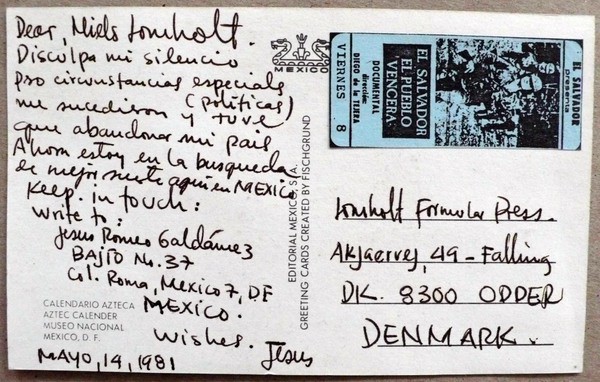 Dear, Niels Lomholt.
Disculpa mi silencio
pso circunstancias especials
me sucedieron (politicas)
y tuve
que abandonar mi pais
Ahora estoy en la busqueda
de mejor suerte aqui en MEXICO
Keep. in touch:
Write to:
Jesus Romeo Galdámez
BAJIO No. 37
Col. Roma, Mexico 7, DF
MEXICO.
Wishes.
Jesus
MAYO, 14, 1981
CALENDARIO AZTECA
AZTEC CALENDER
MUSEO NACIONAL
MEXICO, D. F.
MEXICO
EDITORIAL MEXICO, S. A.
GREETING CARDS CREATED BY FISCHGRUND
EL SALVADOR
presenta
EL SALVADOR
EL PUEBLO
VENCERA
DOCUMENTAL
dirección
DIEGO de la TEXERA
VIERNES 8
Lomholt Formular Press.
Akjaervej, 49 - Falling
DK. 8300 ODDER
DENMARK.